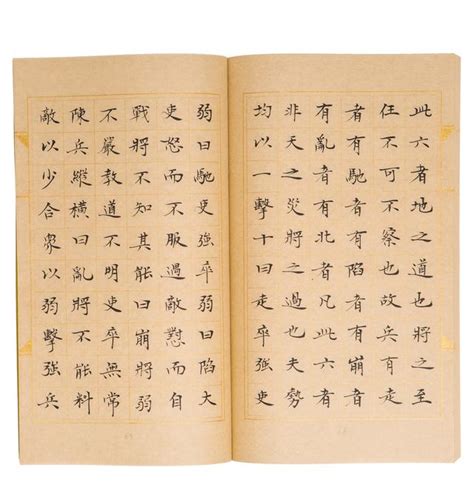 此六者地之道也將之至
任不可不察也故兵有走
者有馳者有陷者有崩者
有亂者有北者凡此六者
非天之災將之過也夫勢
均以一擊十曰走卒強吏
弱曰馳吏強卒弱曰陷大
吏怒而不服過敵懟而自
戰將不知其能曰崩將弱
不嚴教道不明吏卒無常
陳兵縱橫曰亂將不能料
敵以少合衆以弱擊強兵